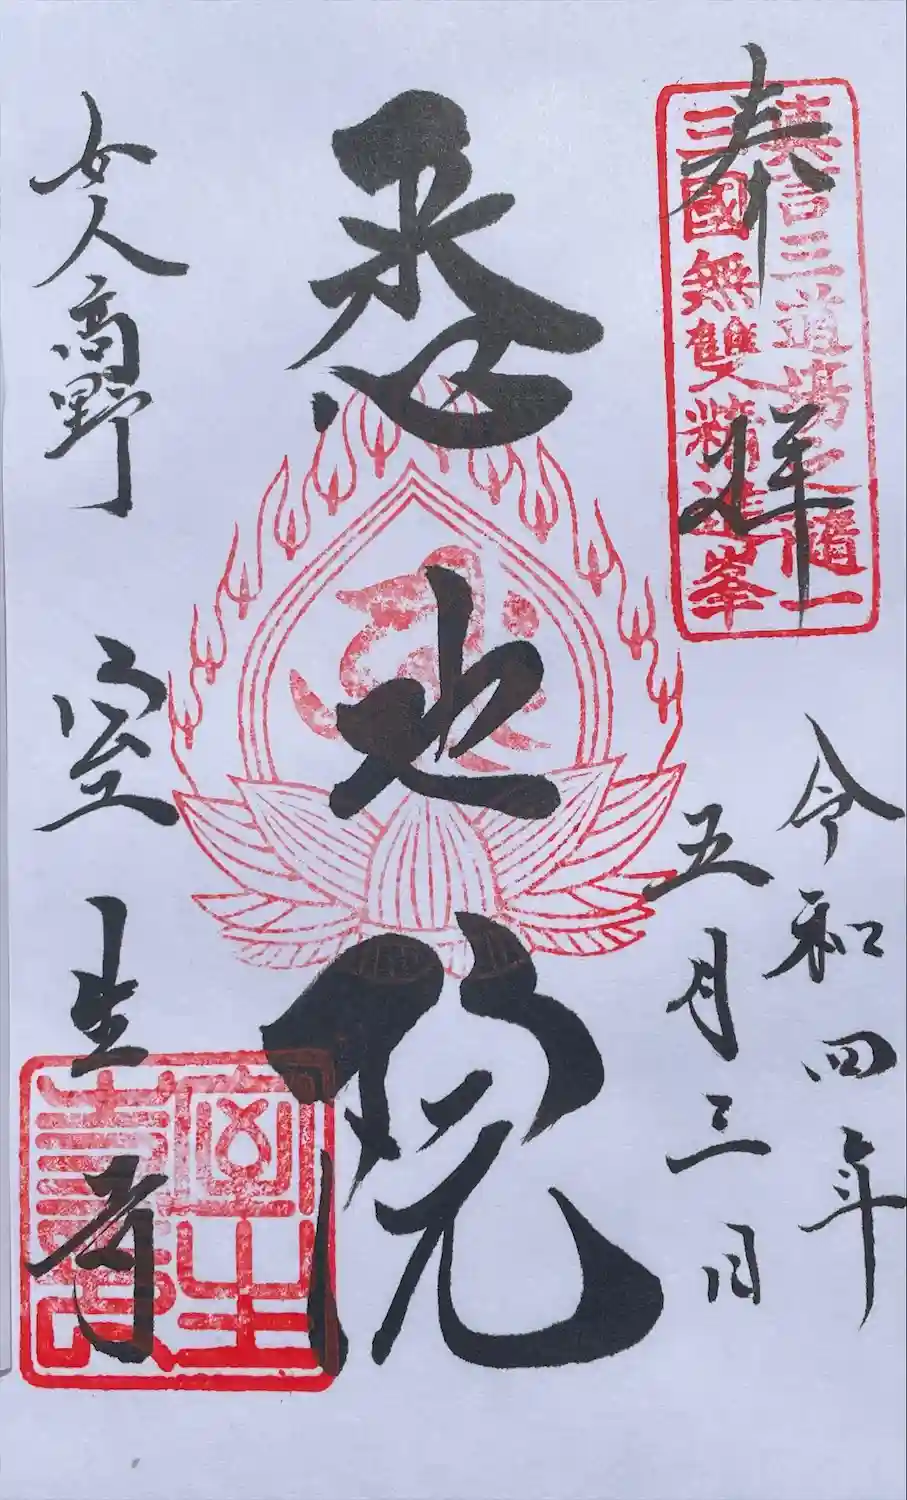 奉拝
真言三道場之隨一
三國無雙精進峯
令和四年
五月三日
悉地院
女人高野
室生寺